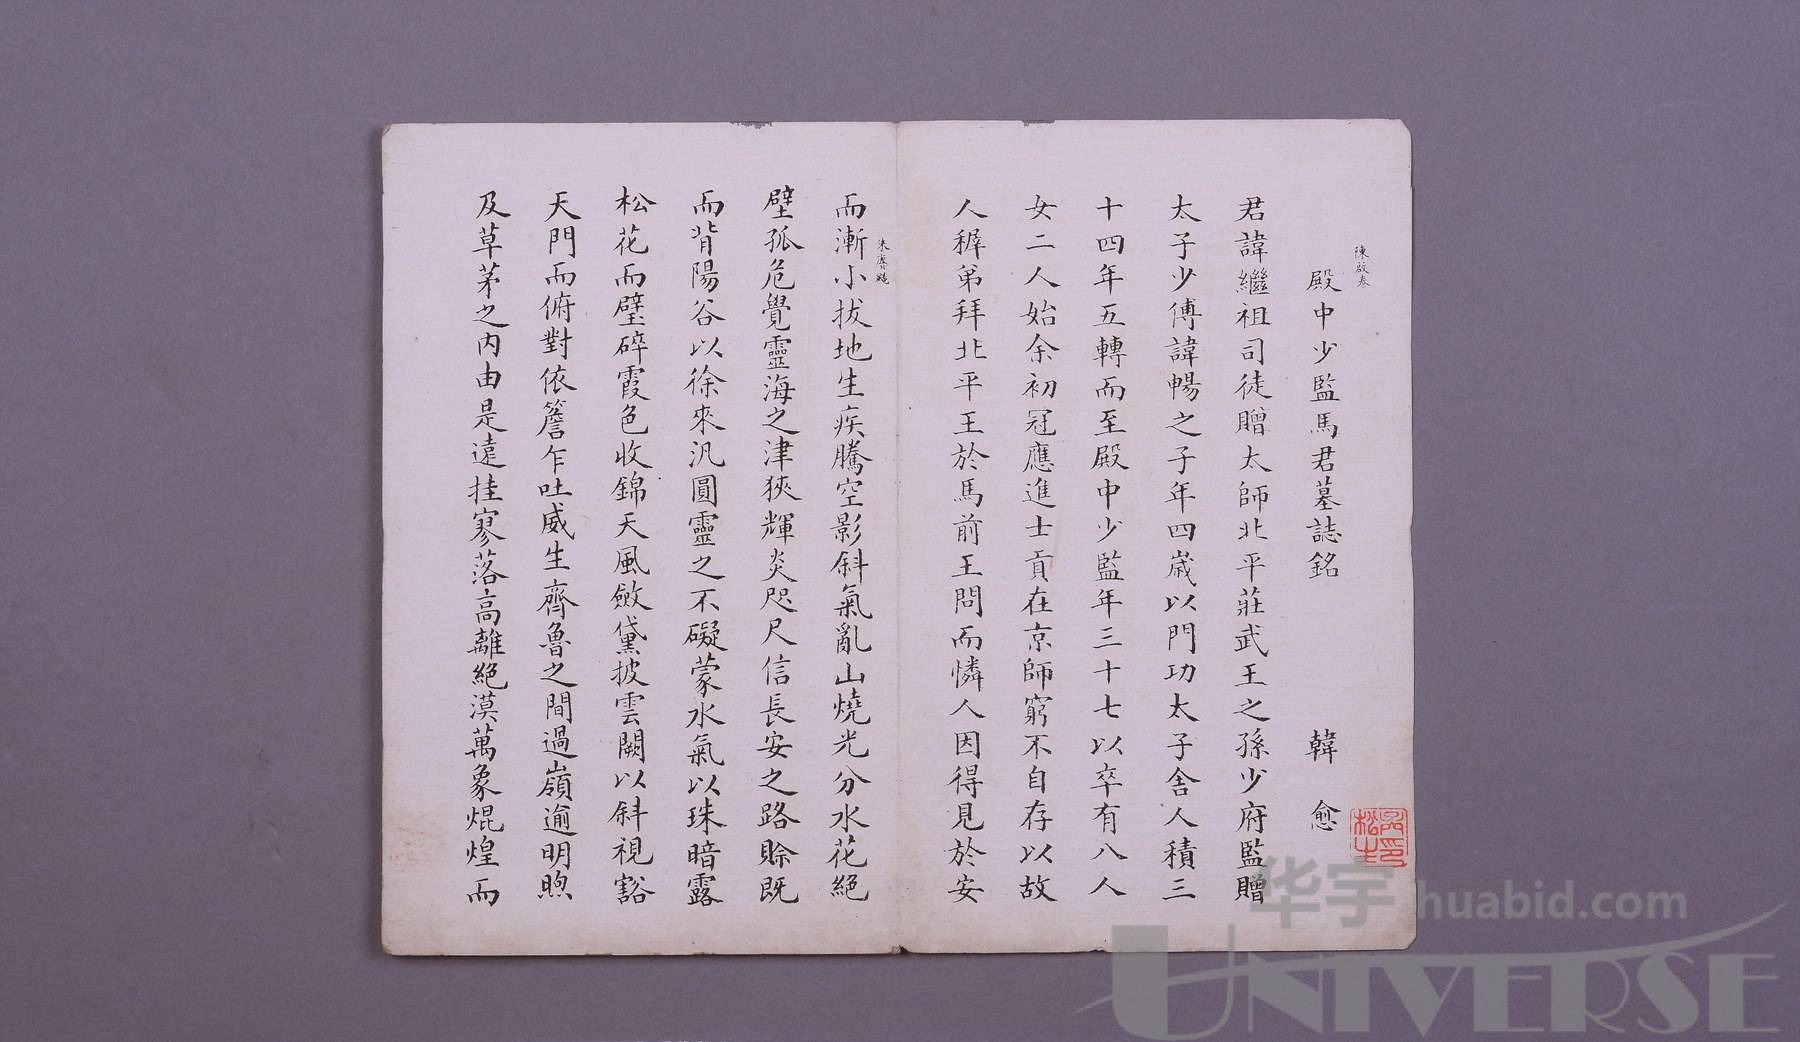 陳啟泰
殿中少監馬君墓誌銘 韓愈
君諱繼祖司徒贈太師北平莊武王之孫少府監贈
太子少傅諱暢之子年四歲以門功太子舍人積三
十四年五轉而至殿中少監年三十七以卒有八人
女二人始余初冠應進士貢在京師窮不自存以故
人稺弟拜北平王於馬前王問而憐人因得見於安
朱
而漸小拔地生疾騰空影斜氣亂山燒光分水花絕
壁孤危覺靈海之津狹輝炎咫尺信長安之路賒既
而背陽谷以徐來汎圓靈之不礙蒙水氣以珠暗露
松花而璧碎霞色收錦天風斂黛披雲闕以斜視豁
天門而俯對依簷乍吐威生齊魯之間過嶺逾明煦
及草茅之內由是遠挂寥落高離絕漠萬象焜煌而
华宇 huabid.com
UNIVERSE